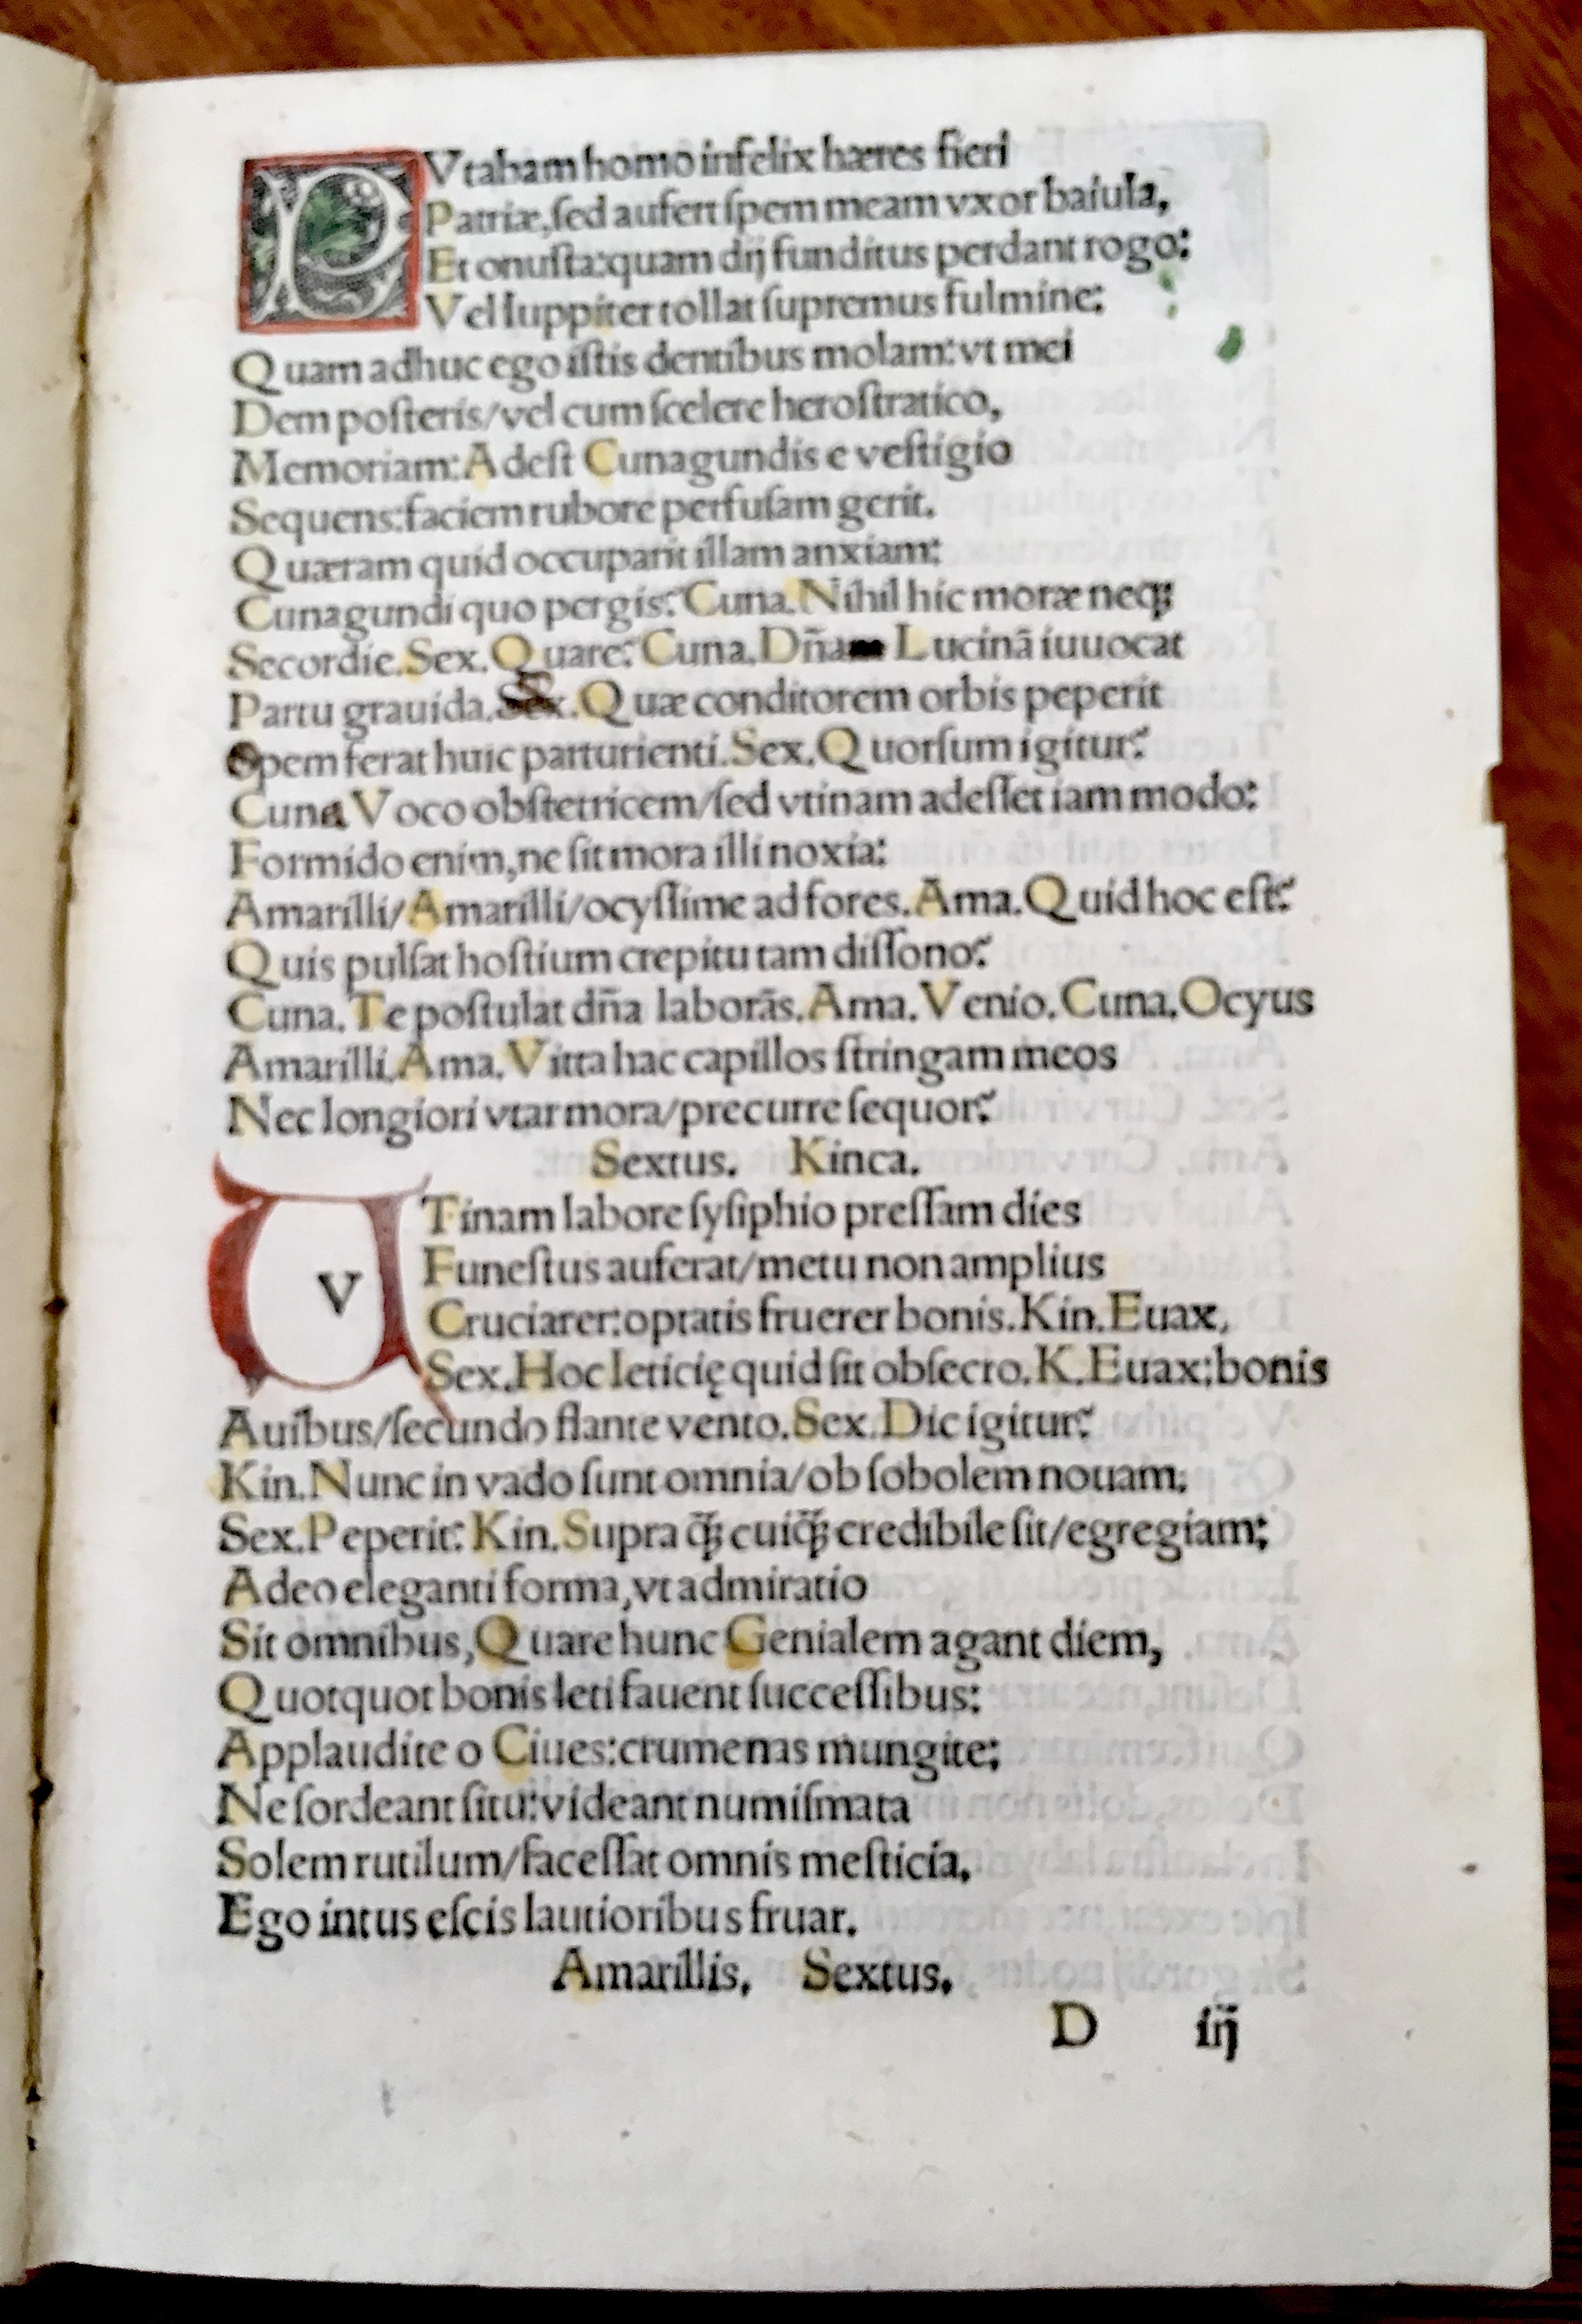 PVtabam homo infelix hæres fieri
Patriæ,ſed aufert ſpem meam vxor baiula,
Et onuſta:quam dij funditus perdant rogo:
Vel Iuppiter tollat ſupremus fulmine:
Quam adhuc ego iſtis dentibus molam:vt mei
Dem poſteris/vel cum ſcelere heroſtratico,
Memoriam:Adeſt Cunagundis e veſtigio
Sequens:faciem rubore perfuſam gerit.
Quæram quid occuparit illam anxiam:
Cunagundi quo pergis? Cuna. Nihil hic moræ neq;
Secordie. Sex. Quare? Cuna. Dñam Lucinã iuuocat
Partu grauida. Sex. Quæ conditorem orbis peperit
Opem ferat huic parturienti. Sex. Quorſum igitur?
Cuna Voco obſtetricem/ſed vtinam adeſſet iam modo:
Formido enim,ne ſit mora illi noxia:
Amarilli/Amarilli/ocyſſime ad fores. Ama. Quid hoc eſt?
Quis pulſat hoſtium crepitu tam diſſono?
Cuna. Te poſtulat dña laborãs. Ama. Venio. Cuna. Ocyus
Amarilli. Ama. Vitta hac capillos ſtringam meos
Nec longiori vtar mora/precurre ſequor?
Sextus. Kinca.
VTinam labore ſyſiphio preſſam dies
Funeſtus auferat/metu non amplius
Cruciarer:optatis fruerer bonis. Kin. Euax,
Sex. Hoc leticię quid ſit obſecro. K. Euax:bonis
Auibus/ſecundo flante vento. Sex. Dic igitur?
Kin. Nunc in vado ſunt omnia/ob ſobolem nouam.
Sex. Peperit? Kin. Supra q̃ꝫ cuiq̃ꝫ credibile ſit/egregiam:
Adeo eleganti forma,vt admiratio
Sit omnibus,Quare hunc Genialem agant diem,
Quotquot bonis leti fauent ſucceſſibus:
Applaudite o Ciues:crumenas mungite:
Ne ſordeant ſitu:videant numiſmata
Solem rutilum/faceſſat omnis meſticia,
Ego intus eſcis lautioribus fruar.
Amarillis. Sextus.
D iij